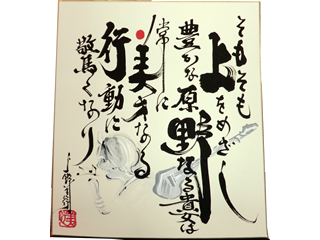 そもそも
上をめざし
豊かな原
野なる貴女は
常に
美才なる
行動に
驚くなり